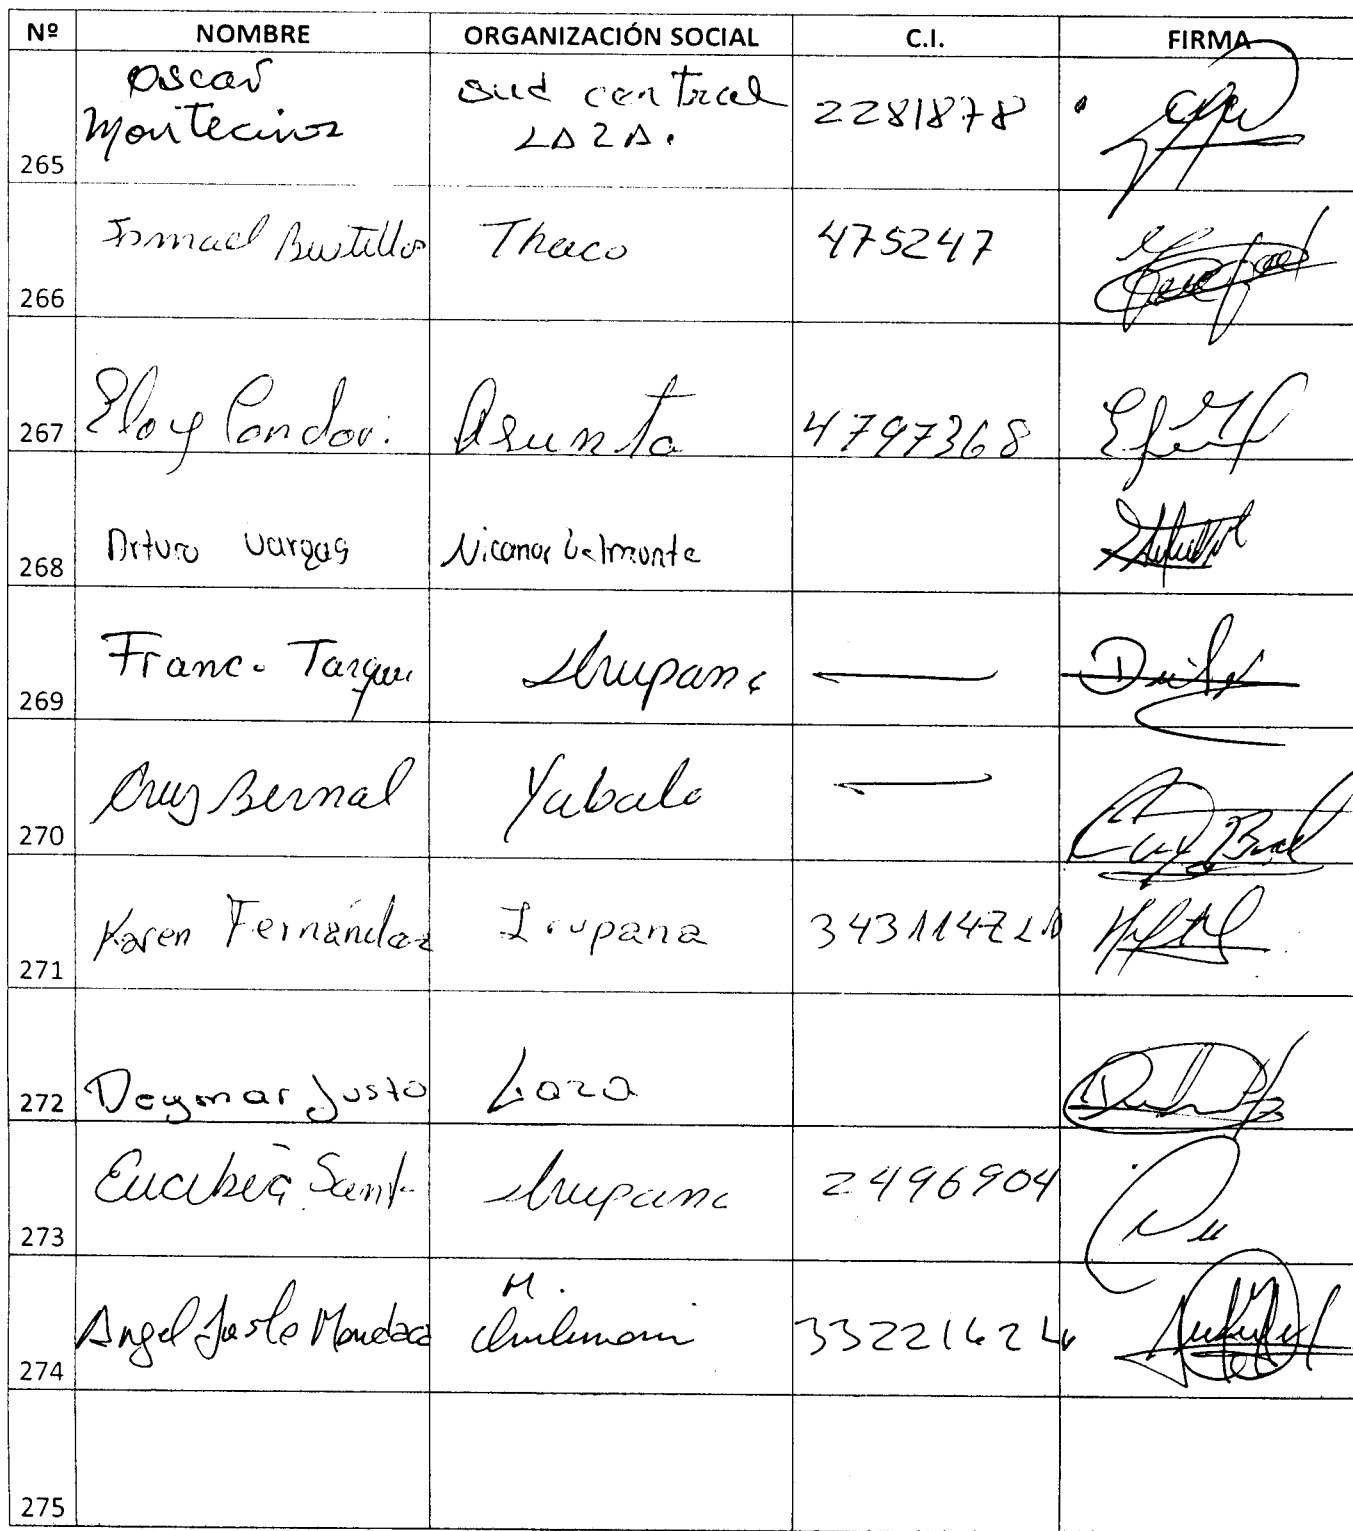 Nº NOMBRE ORGANIZACIÓN SOCIAL C.I. FIRMA
265 Oscar Montecinos sud central LAZA. 2281878
266 Ismael Bustillos Thaco 475247
267 Eloy Condori. Asunta 4797368
268 Arturo Vargas Nicanor Velmonte
269 Franc. Tarqui Irupana
270 Cruz Bernal Yabalo
271 Karen Fernández Irupana 3431147 LP
272 Deymar Justo Laza
273 Sant. Irupana 2496904
274 Angel Justo Mondaca M. Chulumani 3322162 L
275